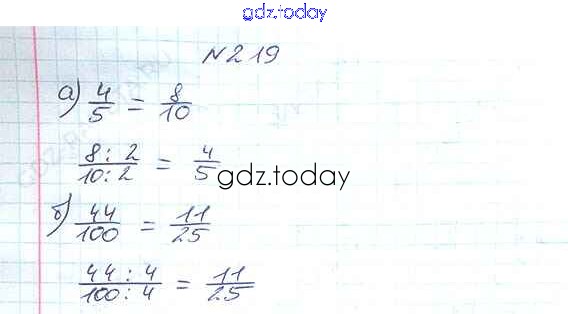 gdz.today
№ 219
а) 4/5 = 8/10
8:2/10:2 = 4/5
gdz.today
б) 44/100 = 11/25
44:4/100:4 = 11/25